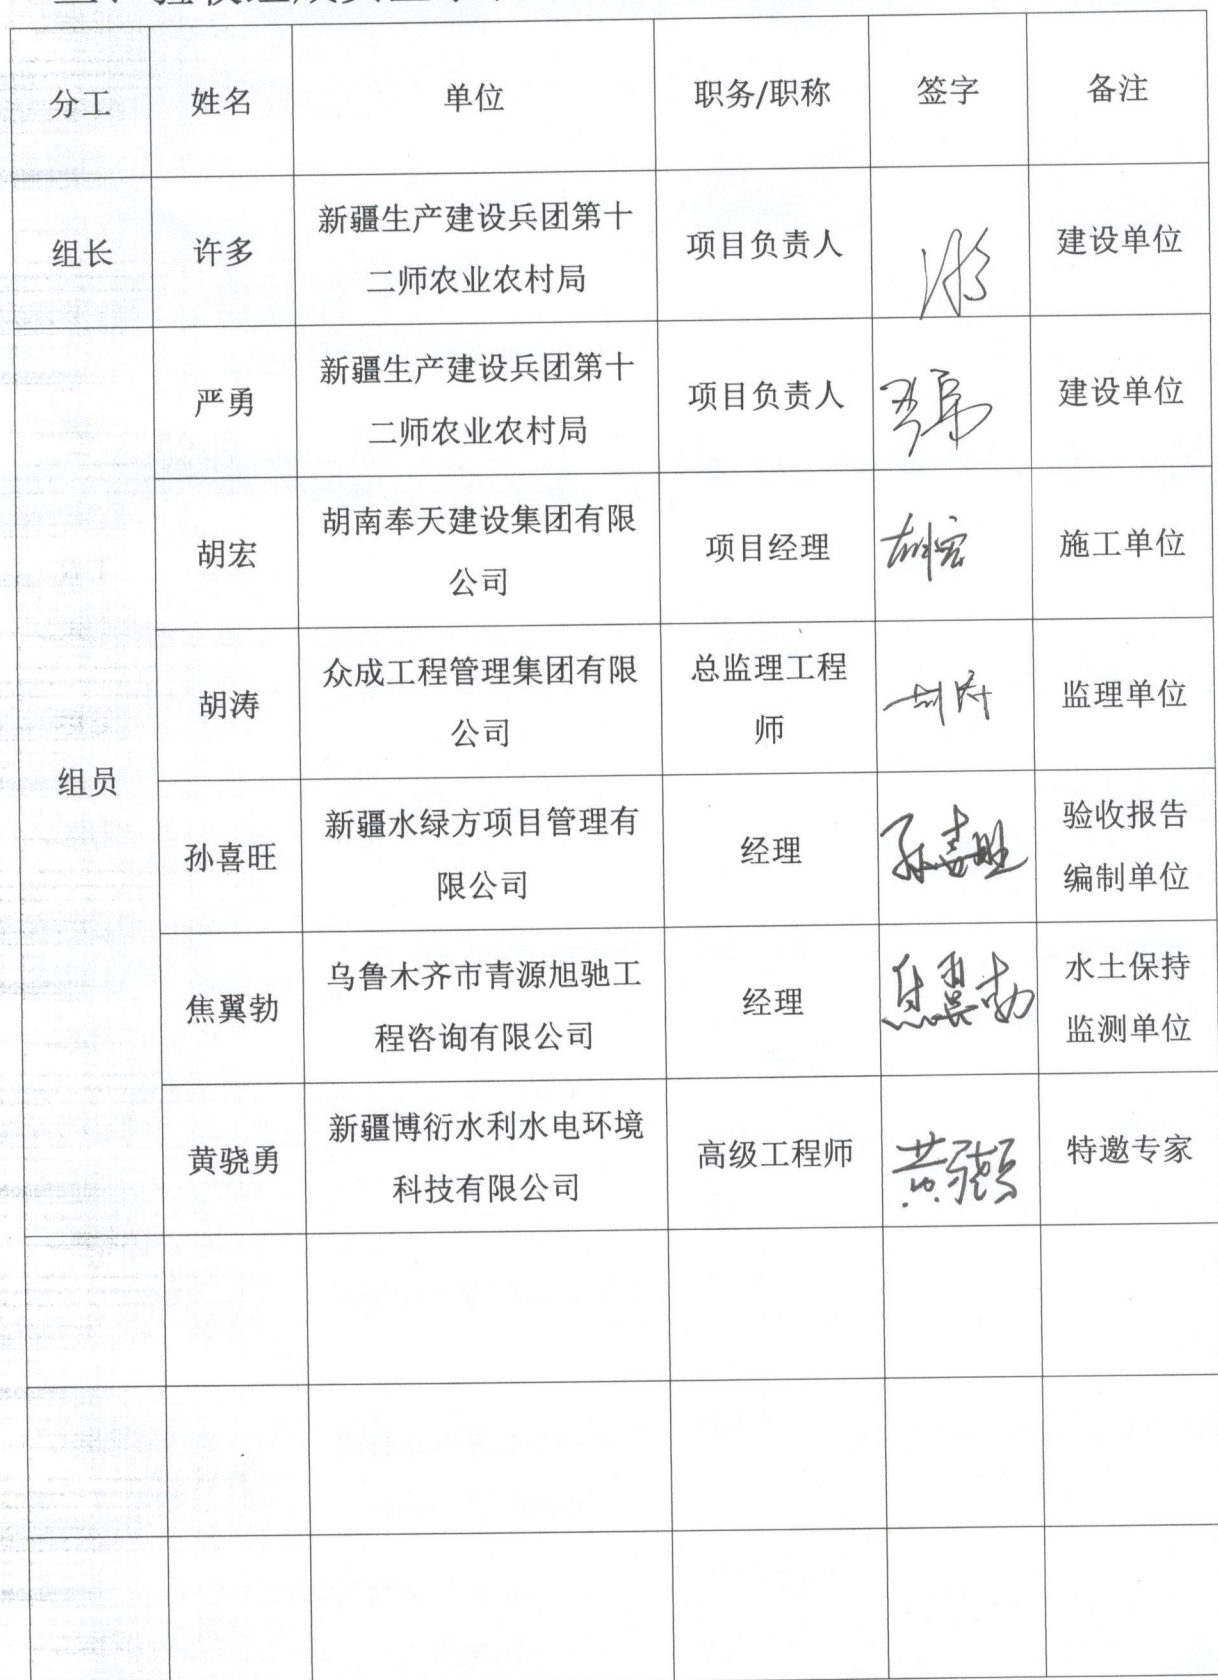 分工 姓名 单位 职务/职称 签字 备注
组长 许多 新疆生产建设兵团第十
二师农业农村局 项目负责人 建设单位
组员
严勇 新疆生产建设兵团第十
二师农业农村局 项目负责人 建设单位
胡宏 胡南奉天建设集团有限
公司 项目经理 胡宏 施工单位
胡涛 众成工程管理集团有限
公司 总监理工程
师 监理单位
孙喜旺 新疆水绿方项目管理有
限公司 经理 孙喜旺 验收报告
编制单位
焦翼勃 乌鲁木齐市青源旭驰工
程咨询有限公司 经理 焦翼勃 水土保持
监测单位
黄骁勇 新疆博衍水利水电环境
科技有限公司 高级工程师 黄骁勇 特邀专家